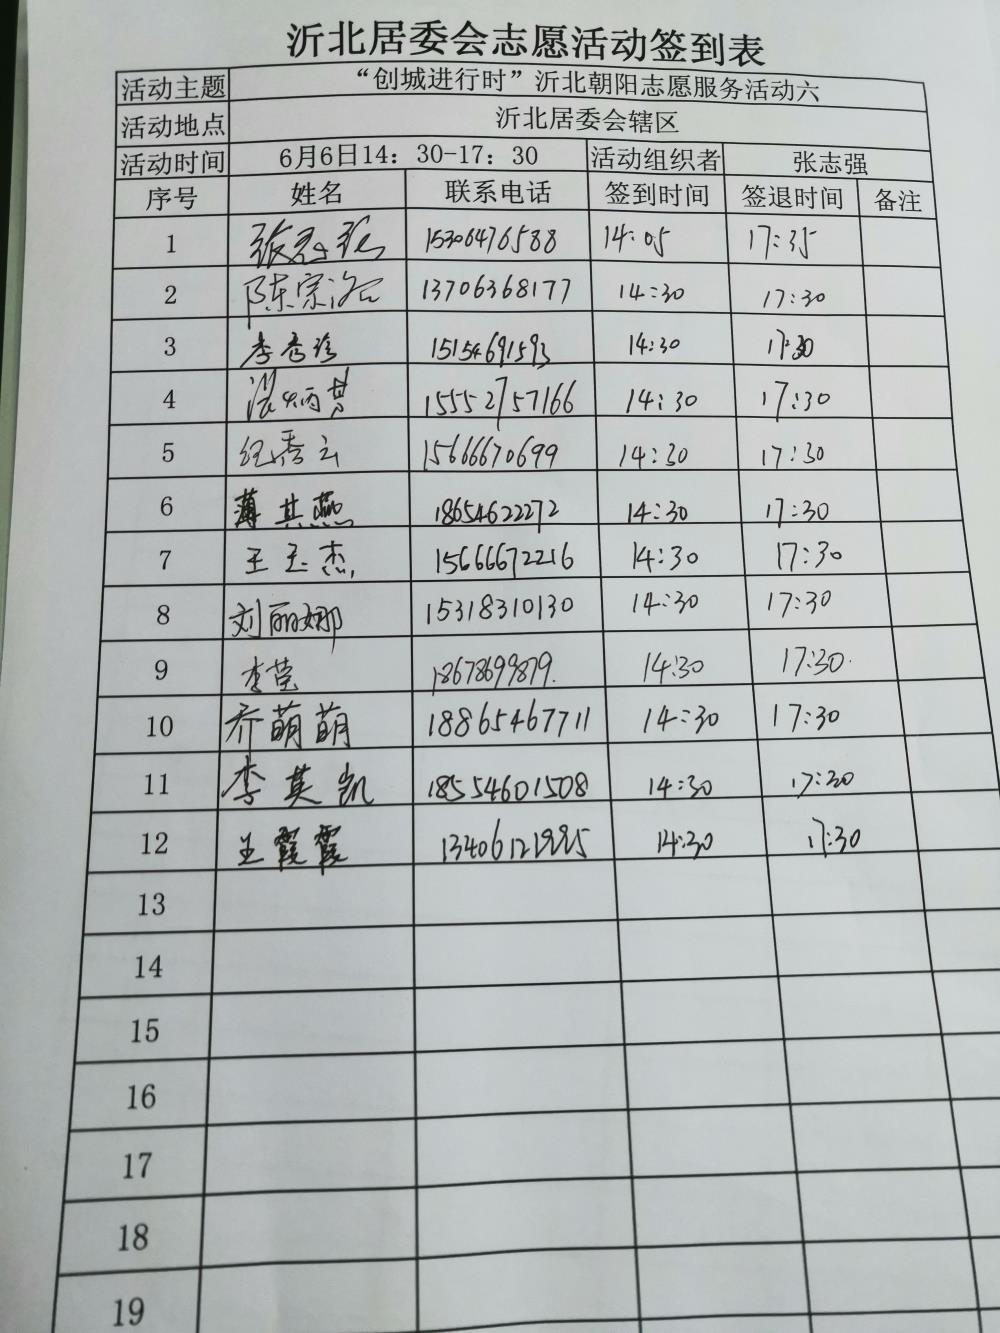 沂北居委会志愿活动签到表
活动主题 “创城进行时”沂北朝阳志愿服务活动六
活动地点 沂北居委会辖区
活动时间 6月6日14：30-17：30 活动组织者 张志强
序号 姓名 联系电话 签到时间 签退时间 备注
1 张志强 15306476588 14:05 17:35
2 陈宗 13706368177 14:30 17:30
3 李秀珍 15154691593 14:30 17:30
4 炳 15552757166 14:30 17:30
5 纪秀云 15666670699 14:30 17:30
6 薄其燕 18654622272 14:30 17:30
7 王玉杰 15666672216 14:30 17:30
8 刘丽娜 15318310130 14:30 17:30
9 李莹 18678699879. 14:30 17:30
10 乔萌萌 18865467711 14:30 17:30
11 李英凯 18554601508 14:30 17:30
12 王霞霞 14:30 17:30
13
14
15
16
17
18
19